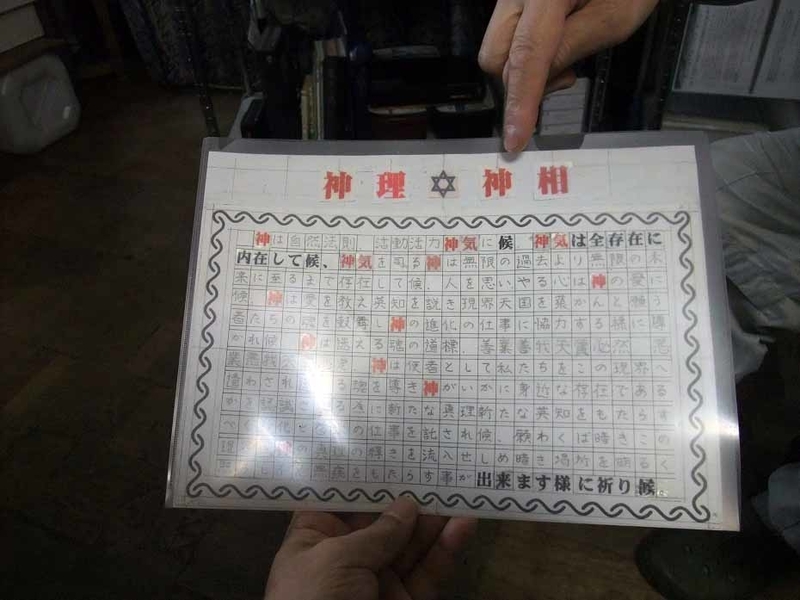 神理✡神相
神は自然法則 活動活力神気に候、神気は全存在に
内在して候、神気を司る神は無限の過去より無限の未
来に至るまで存在して候、人を思いやる心は神の愛に
候、神は愛を教え英知を説き現界天国を築かんと願う
者たちの魂を鼓舞し神の進化の仕事に協力する様に導
かれ候 神は燃える魂の道標、善業善我天
神は使者として私たちをこの現界へ
遣わされ 魂を導き神がいかに身近な存在である
かを認識 新たな真理新たな英知をもたらす
べく 化 の仕事を託され候、願わくば暗きこの
の輝きを流入せしめ暗き場所を明るく
をもたらす事が出来ます様に祈り候。